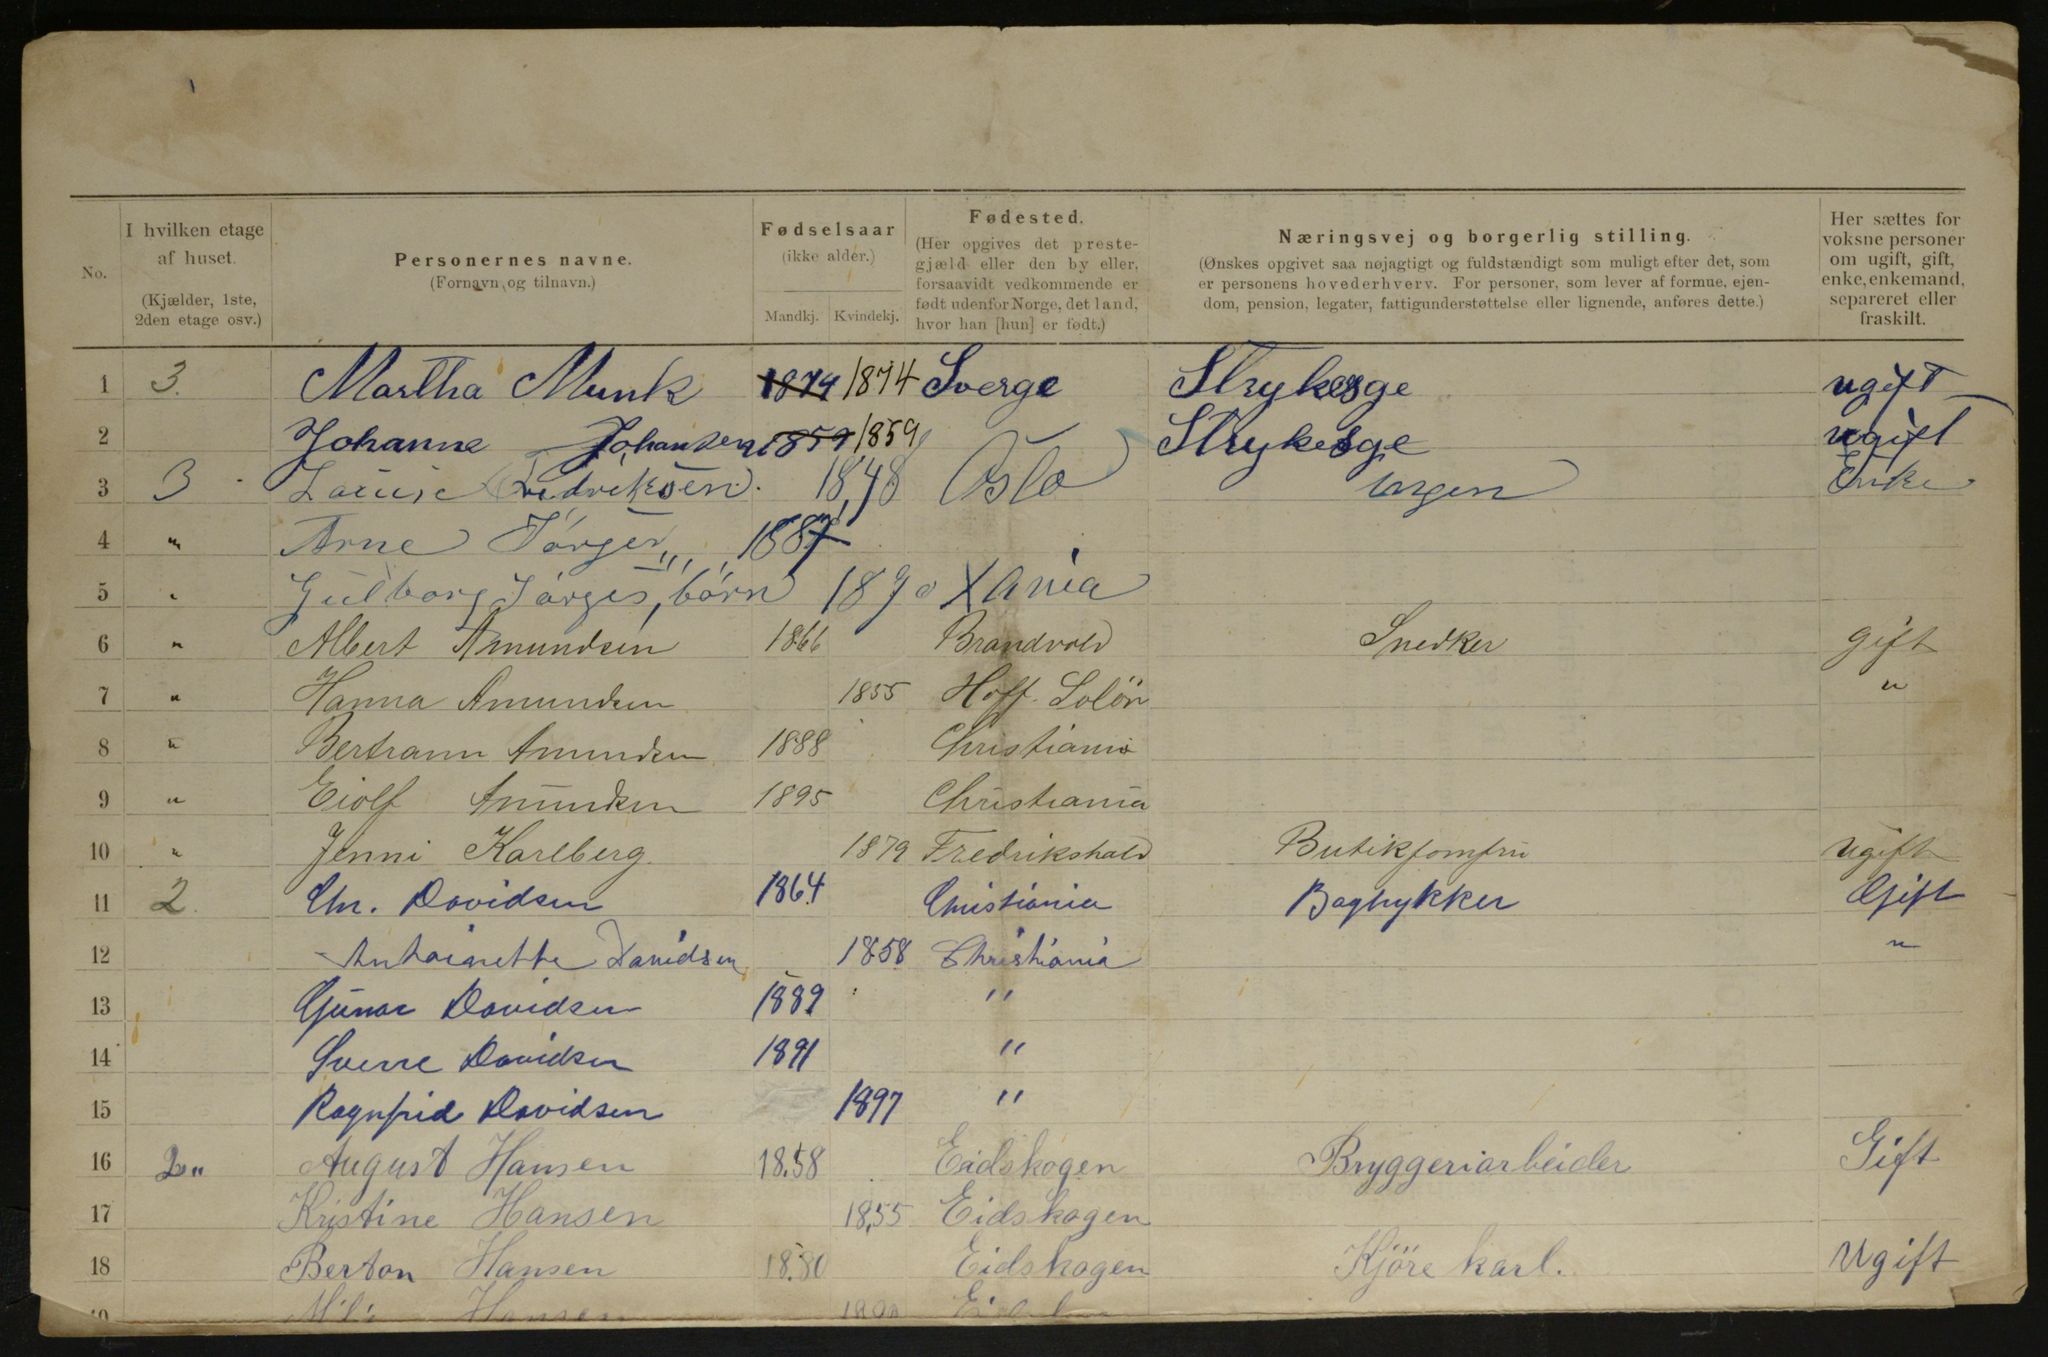 No.
I hvilken etage
af huset.
(Kjælder, 1ste,
2den etage osv.)
Personernes navne.
(Fornavn og tilnavn.)
Fødselsaar
(ikke alder.)
Mandkj. Kvindekj.
Fødested.
(Her opgives det preste-
gjæld eller den by eller,
forsaavidt vedkommende er
født udenfor Norge, det land,
hvor han [hun] er født.)
Næringsvej og borgerlig stilling.
(Ønskes opgivet saa nøjagtigt og fuldstændigt som muligt efter det, som
er personens hovederhverv. For personer, som lever af formue, ejen-
dom, pension, legater, fattigunderstøttelse eller lignende, anføres dette.)
Her sættes for
voksne personer
om ugift, gift,
enke, enkemand,
separeret eller
fraskilt.
1 3. Martha Munk 1874 1874 Sverge Strykerge ugift
2 Johanne Johansen 1859 1859 Strykerge ugift
3 3 Louise Fredriksen. 1848 Oslo Enke
4 " Arne Jörges 1887
5 " Gulborg Jörges, börn 1890 Xania
6 " Albert Amundsen 1866 Brandvold Snedker gift
7 " Hanna Amundsen 1855 Hoff. Solör "
8 " Bertram Amundsen 1888 Christiania
9 " Eiolf Amundsen 1895 Christiania
10 " Jenni Karlberg. 1879 Fredrikshald Butikjomfru Ugift
11 2 Chr. Davidsen 1864 Christiania Bogtrykker Gift
12 Antoinette Davidsen 1858 Christiania "
13 Gunar Davidsen 1889 "
14 Sverre Davidsen 1891 "
15 Ragnfrid Davidsen 1897 "
16 2 " August Hansen 1858 Eidskogen Bryggeriarbeider Gift
17 Kristine Hansen 1855 Eidskogen
18 Berton Hansen 1880 Eidskogen Kjöre karl. Ugift
19 Hansen